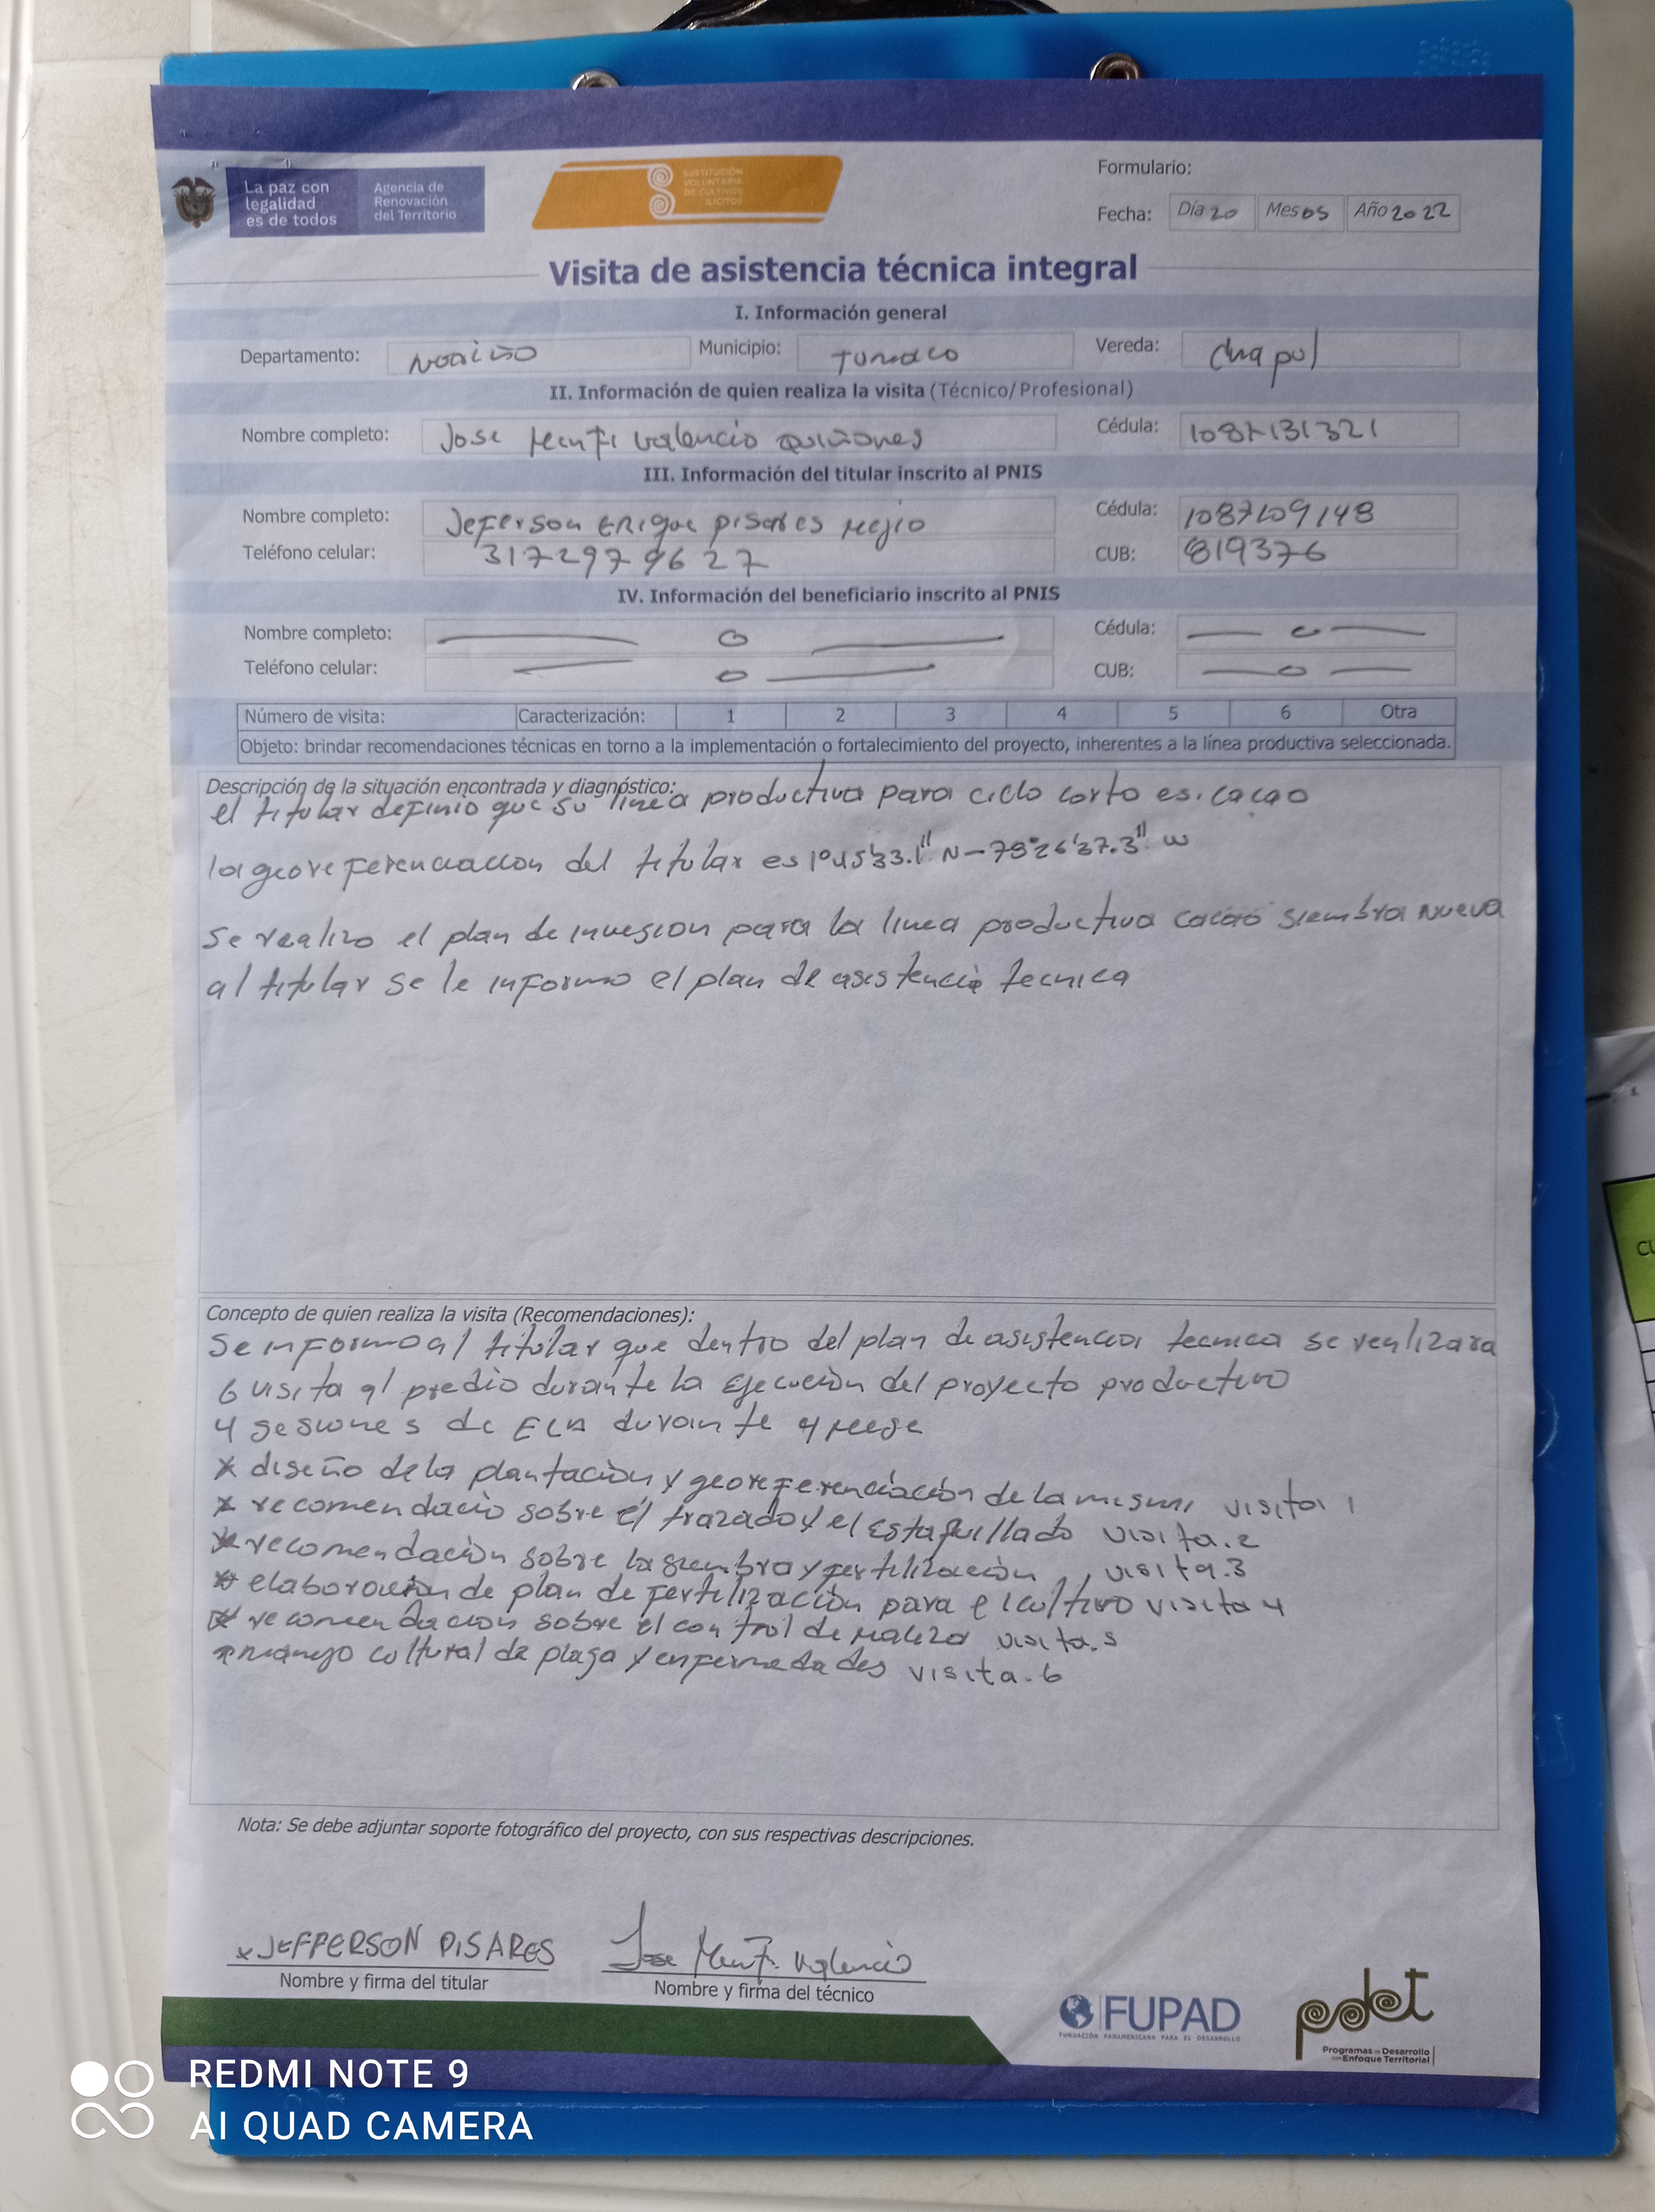 La paz con
legalidad
es de todos
Agencia de
Renovación
del Territorio
SUSTITUCIÓN
VOLUNTARIA
DE CULTIVOS
ILÍCITOS
Formulario:
Fecha: Día 20 Mes 05 Año 2022
Visita de asistencia técnica integral
I. Información general
Departamento: Nariño Municipio: Tumaco Vereda: Chapul
II. Información de quien realiza la visita (Técnico/Profesional)
Nombre completo: Jose Valencia Quiñones Cédula: 1087131321
III. Información del titular inscrito al PNIS
Nombre completo: Jeferson Erique pisares Mejia Cédula: 1087209148
Teléfono celular: 3172979627 CUB: 819376
IV. Información del beneficiario inscrito al PNIS
Nombre completo: Cédula:
Teléfono celular: CUB:
Número de visita: Caracterización: 1 2 3 4 5 6 Otra
Objeto: brindar recomendaciones técnicas en torno a la implementación o fortalecimiento del proyecto, inherentes a la línea productiva seleccionada.
Descripción de la situación encontrada y diagnóstico:
el titular definio que su linea productiva para ciclo corto es. cacao
la georeferenciacion del titular es 1°45'33.1" N-78°26'37.3" w
Se realizo el plan de invesion para la linea productiva cacao siembra nueva
al titular se le informo el plan de asistencia tecnica
Concepto de quien realiza la visita (Recomendaciones):
Se informo al titular que dentro del plan de asistencia tecnica se realizara
6 visita al predio durante la Ejecución del proyecto productivo
4 sesiones de ECA durante 4 mese
* diseño de la plantación y georeferenciación de la misma visita 1
* recomendacio sobre el trazado y el estaquillado visita.2
* recomendación sobre la siembra y fertilización visita.3
* elaboración de plan de fertilización para el cultivo visita 4
* recomendacion sobre el control de maleza visita.5
* manejo cultural de plaga y enfermedades visita.6
Nota: Se debe adjuntar soporte fotográfico del proyecto, con sus respectivas descripciones.
x JEFFERSON PISARES Jose Valencia
Nombre y firma del titular Nombre y firma del técnico
FUPAD
FUNDACIÓN PANAMERICANA PARA EL DESARROLLO
pdet
Programas de Desarrollo
con Enfoque Territorial
REDMI NOTE 9
AI QUAD CAMERA